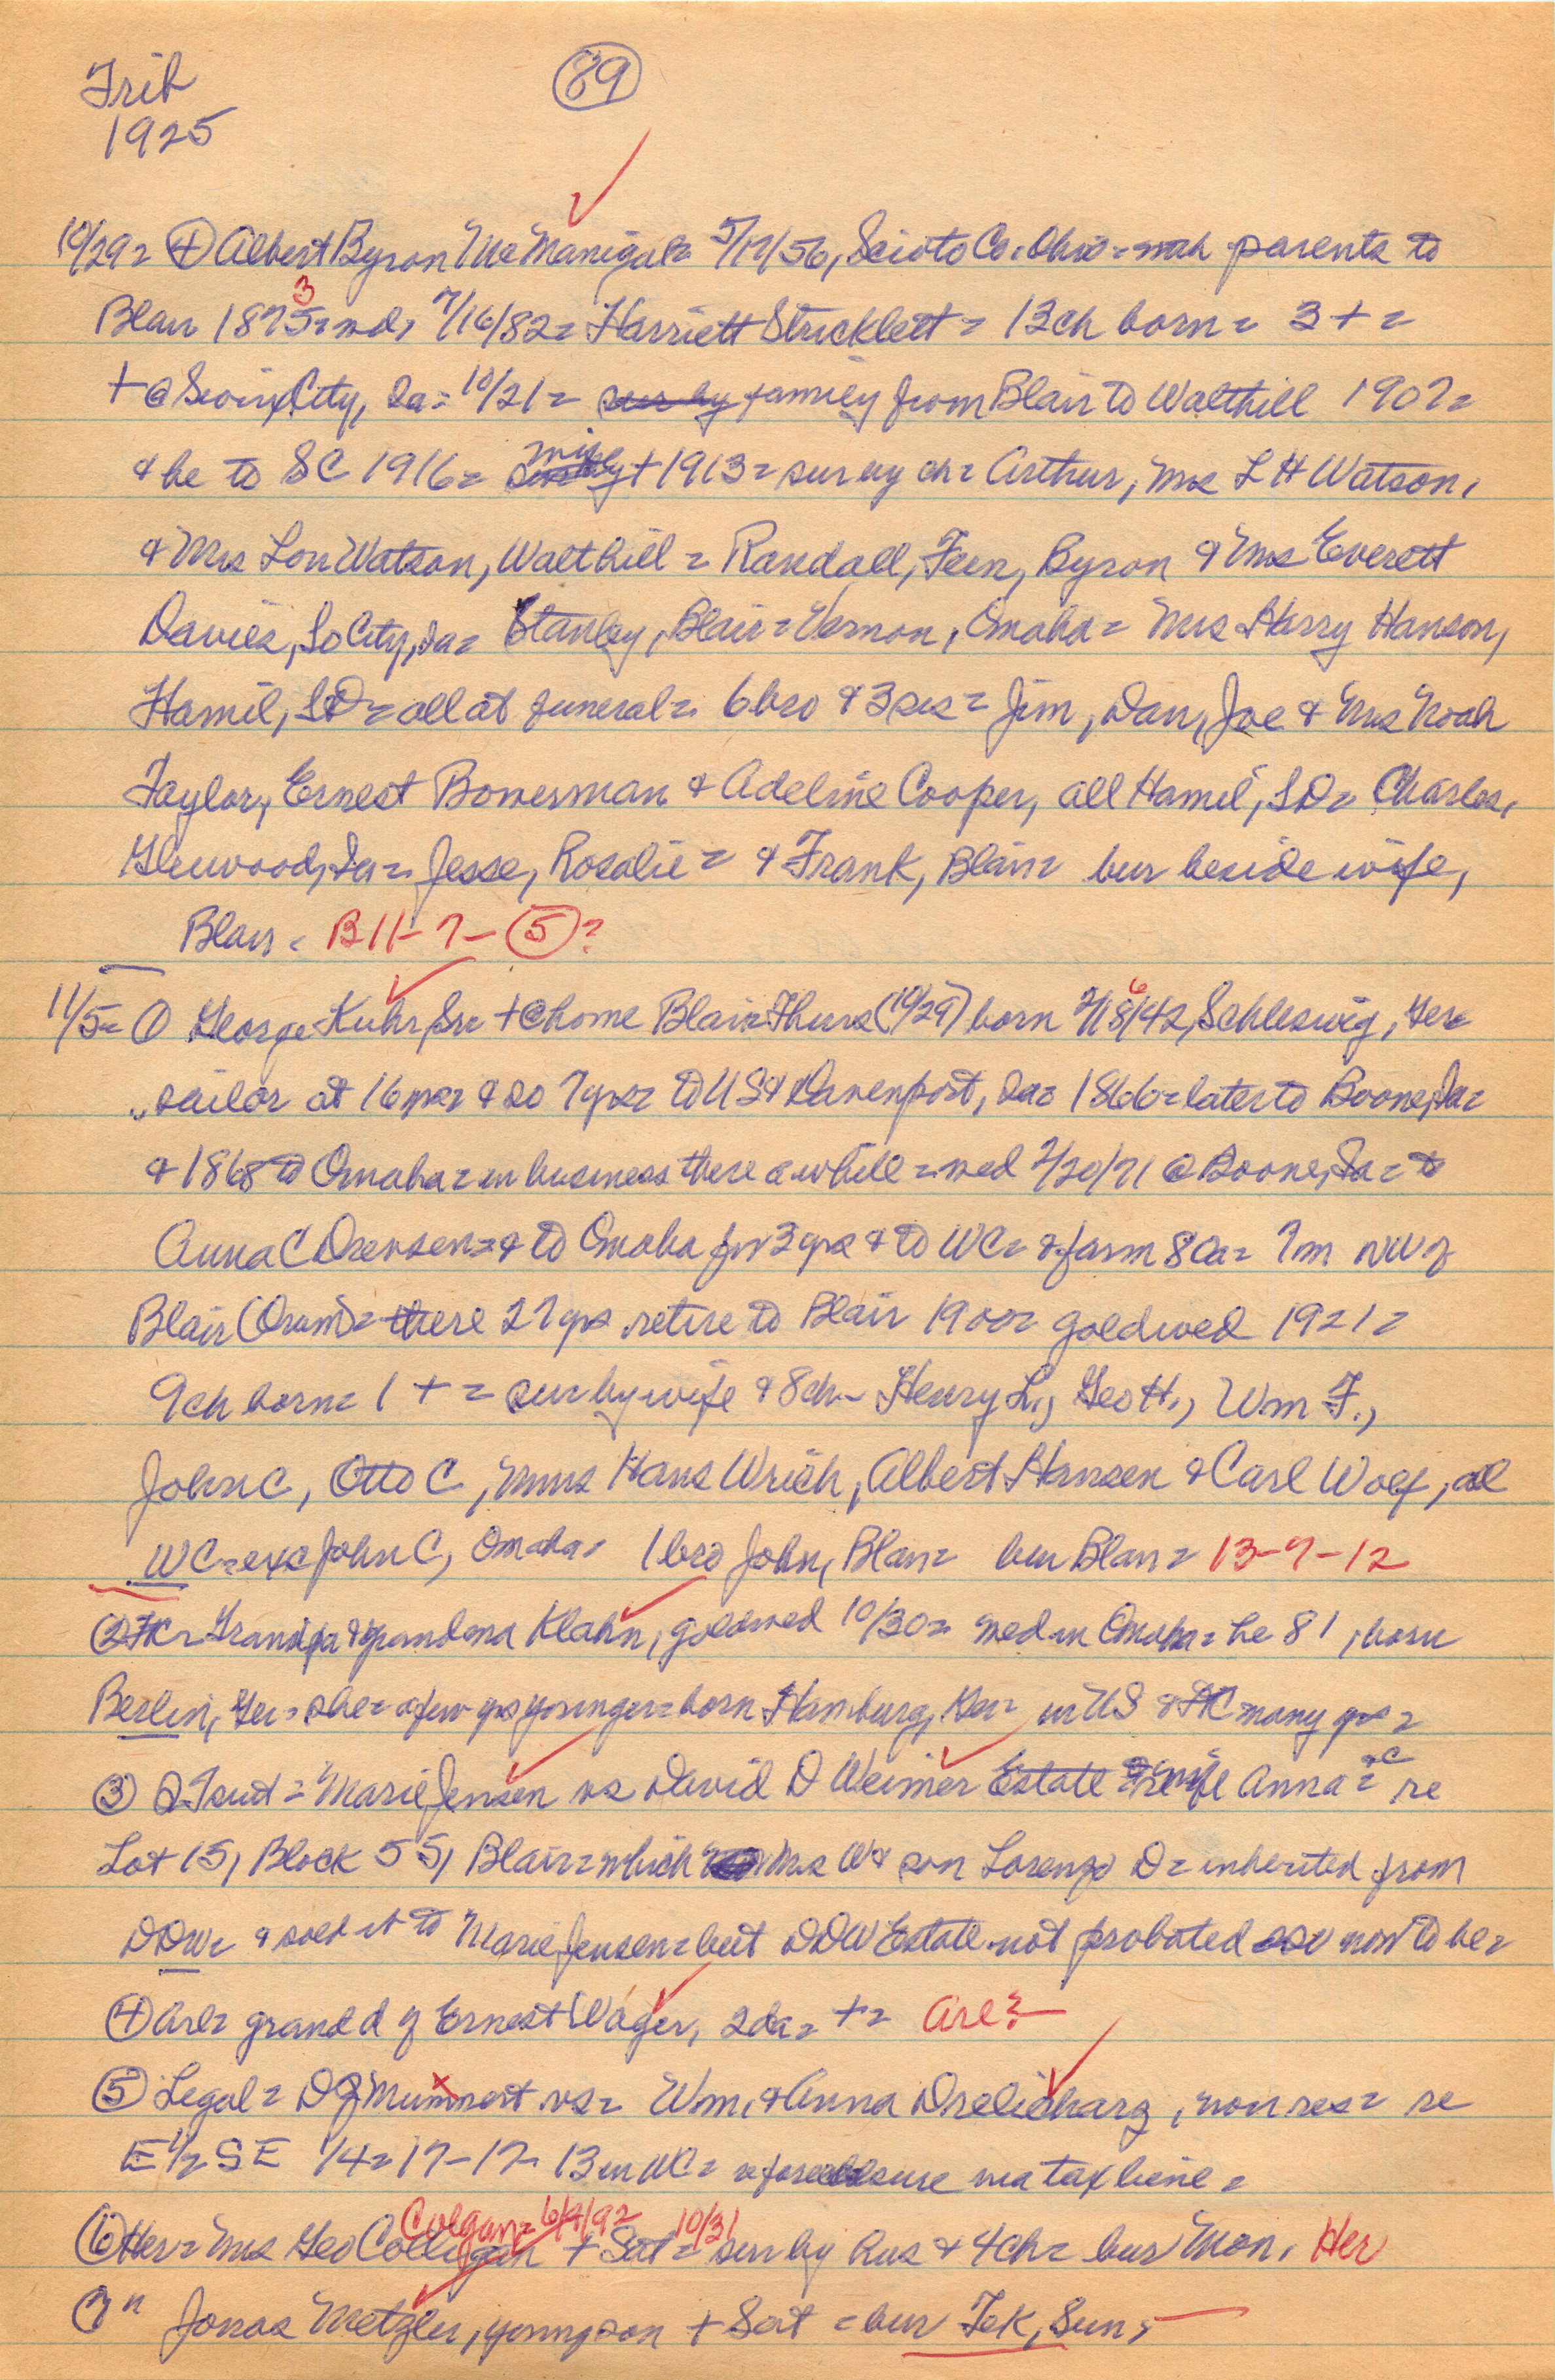 Trib
89
1925
10/29= ④ Albert Byron McManigal= 5/17/56, Scioto Co. Ohio= wah parents to
3
Blair 1875= md, 7/16/82= Harriett Stricklett= 13ch born= 3+=
+@ Sioux City, Ia= 10/21= sur by family from Blair to Walthill 1907=
& he to SC 1916= wife + 1913= sur by ch= Arthur, Mrs L H Watson,
& Mrs Lon Watson, Walthill= Randall, Fern, Byron & Mrs Everett
Davies, So City, Ia= Stanley, Blair= Vernon, Omaha= Mrs Harry Hanson,
Hamil, SD= all at funeral= 6 bro & 3 sis= Jim, Dan, Joe & Mrs Noah
Taylor, Ernest Bowersman & Adeline Cooper, all Hamil, SD= Charles,
Glenwood, Ia= Jesse, Rosalie= & Frank, Blair= bur beside wife,
Blair= B11-7-⑤?
11/5= ① George Kuhr, Sr= +@ home Blair Thurs (10/29) born 2/18/42, Schleswig, Ger=
sailor at 16 yrs= & so 7 yrs= to US & Davenport, Ia= 1866= later to Boone, Ia=
& 1868 to Omaha= in business there awhile= wed 2/20/71 @ Boone, Ia= to
Anna C Drensen= & to Omaha for 3 yrs & to WC= & farm 80a= 7m NW of
Blair (Orum)= there 27 yrs retire to Blair 1900= gold wed 1921=
9ch born= 1+= sur by wife & 8ch- Henry L., Geo H., Wm F.,
John C, Otto C, Mmes Hans Wrich, Albert Hansen & Carl Wolf, all
WC= exc John C, Omaha= 1 bro John, Blair= bur Blair= 13-7-12
② FtC= Grandpa & grandma Klahn, gold wed 10/30= wed in Omaha= he 81, born
Berlin, Ger= she= a few yrs younger= born Hamburg, Ger= in US & FtC many yrs=
③ QT suit= Marie Jensen vs David D Weimer Estate wife Anna C= re
Lot 15, Block 55, Blair= which Mrs W & son Lorenzo D= inherited from
DDW= & sold it to Marie Jensen= but DDW Estate not probated now to be=
④ Arl= grandd of Ernest Wager, 2da= += Arl?
⑤ Legal= D J Mummert vs= Wm. & Anna Drelicharz, non res= re
E 1/2 SE 1/4= 17-17-13 in WC= foreclosure via tax lien=
Colgan= 6/9/92 10/31
⑥ Her= Mrs Geo Colligan + Sat= sur by hus & 4ch= bur Mon. Her
⑦ " Jonas Metzler, young son + Sat= bur Tek, Sun=